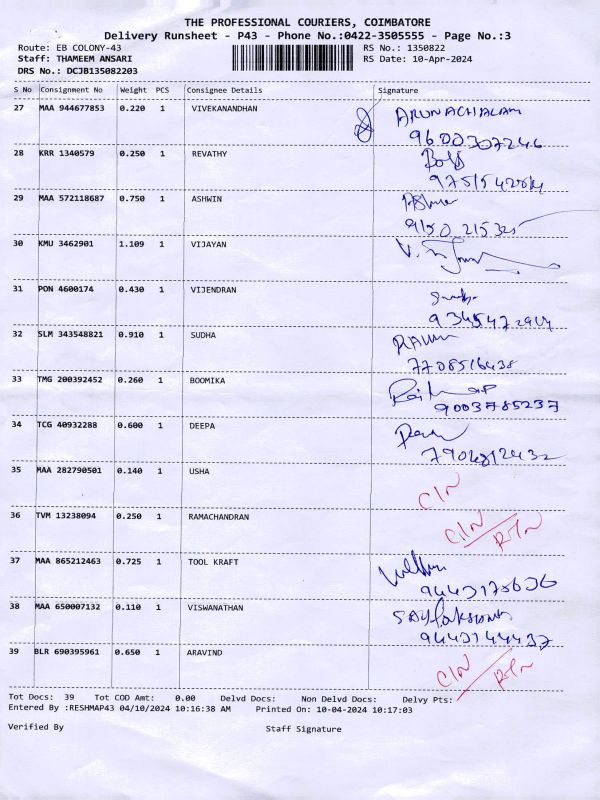 THE PROFESSIONAL COURIERS, COIMBATORE
Delivery Runsheet - P43 - Phone No.:0422-3505555 - Page No.:3
Route: EB COLONY-43 RS No.: 1350822
Staff: THAMEEM ANSARI RS Date: 10-Apr-2024
DRS No.: DCJB135082203
S No Consignment No Weight PCS Consignee Details Signature
27 MAA 944677853 0.220 1 VIVEKANANDHAN ARUNACHALAM
9600307246
28 KRR 1340579 0.250 1 REVATHY
29 MAA 572118687 0.750 1 ASHWIN
30 KMU 3462901 1.109 1 VIJAYAN
31 PON 4600174 0.430 1 VIJENDRAN
32 SLM 343548821 0.910 1 SUDHA
7708516438
33 TMG 200392452 0.260 1 BOOMIKA
9003785237
34 TCG 40932288 0.600 1 DEEPA
35 MAA 282790501 0.140 1 USHA C/N
36 TVM 13238094 0.250 1 RAMACHANDRAN C/N RTN
37 MAA 865212463 0.725 1 TOOL KRAFT
9443178636
38 MAA 650007132 0.110 1 VISWANATHAN
9443144437
39 BLR 690395961 0.650 1 ARAVIND C/N RTN
Tot Docs: 39 Tot COD Amt: 0.00 Delvd Docs: Non Delvd Docs: Delvy Pts:
Entered By :RESHMAP43 04/10/2024 10:16:38 AM Printed On: 10-04-2024 10:17:03
Verified By Staff Signature